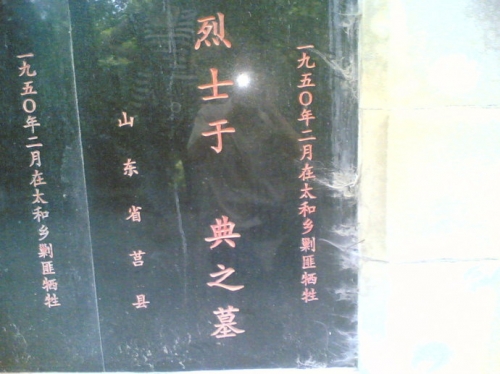 一九五〇年二月在太和乡剿匪牺牲
烈士于 典之墓
山东省莒县
一九五〇年二月在太和乡剿匪牺牲